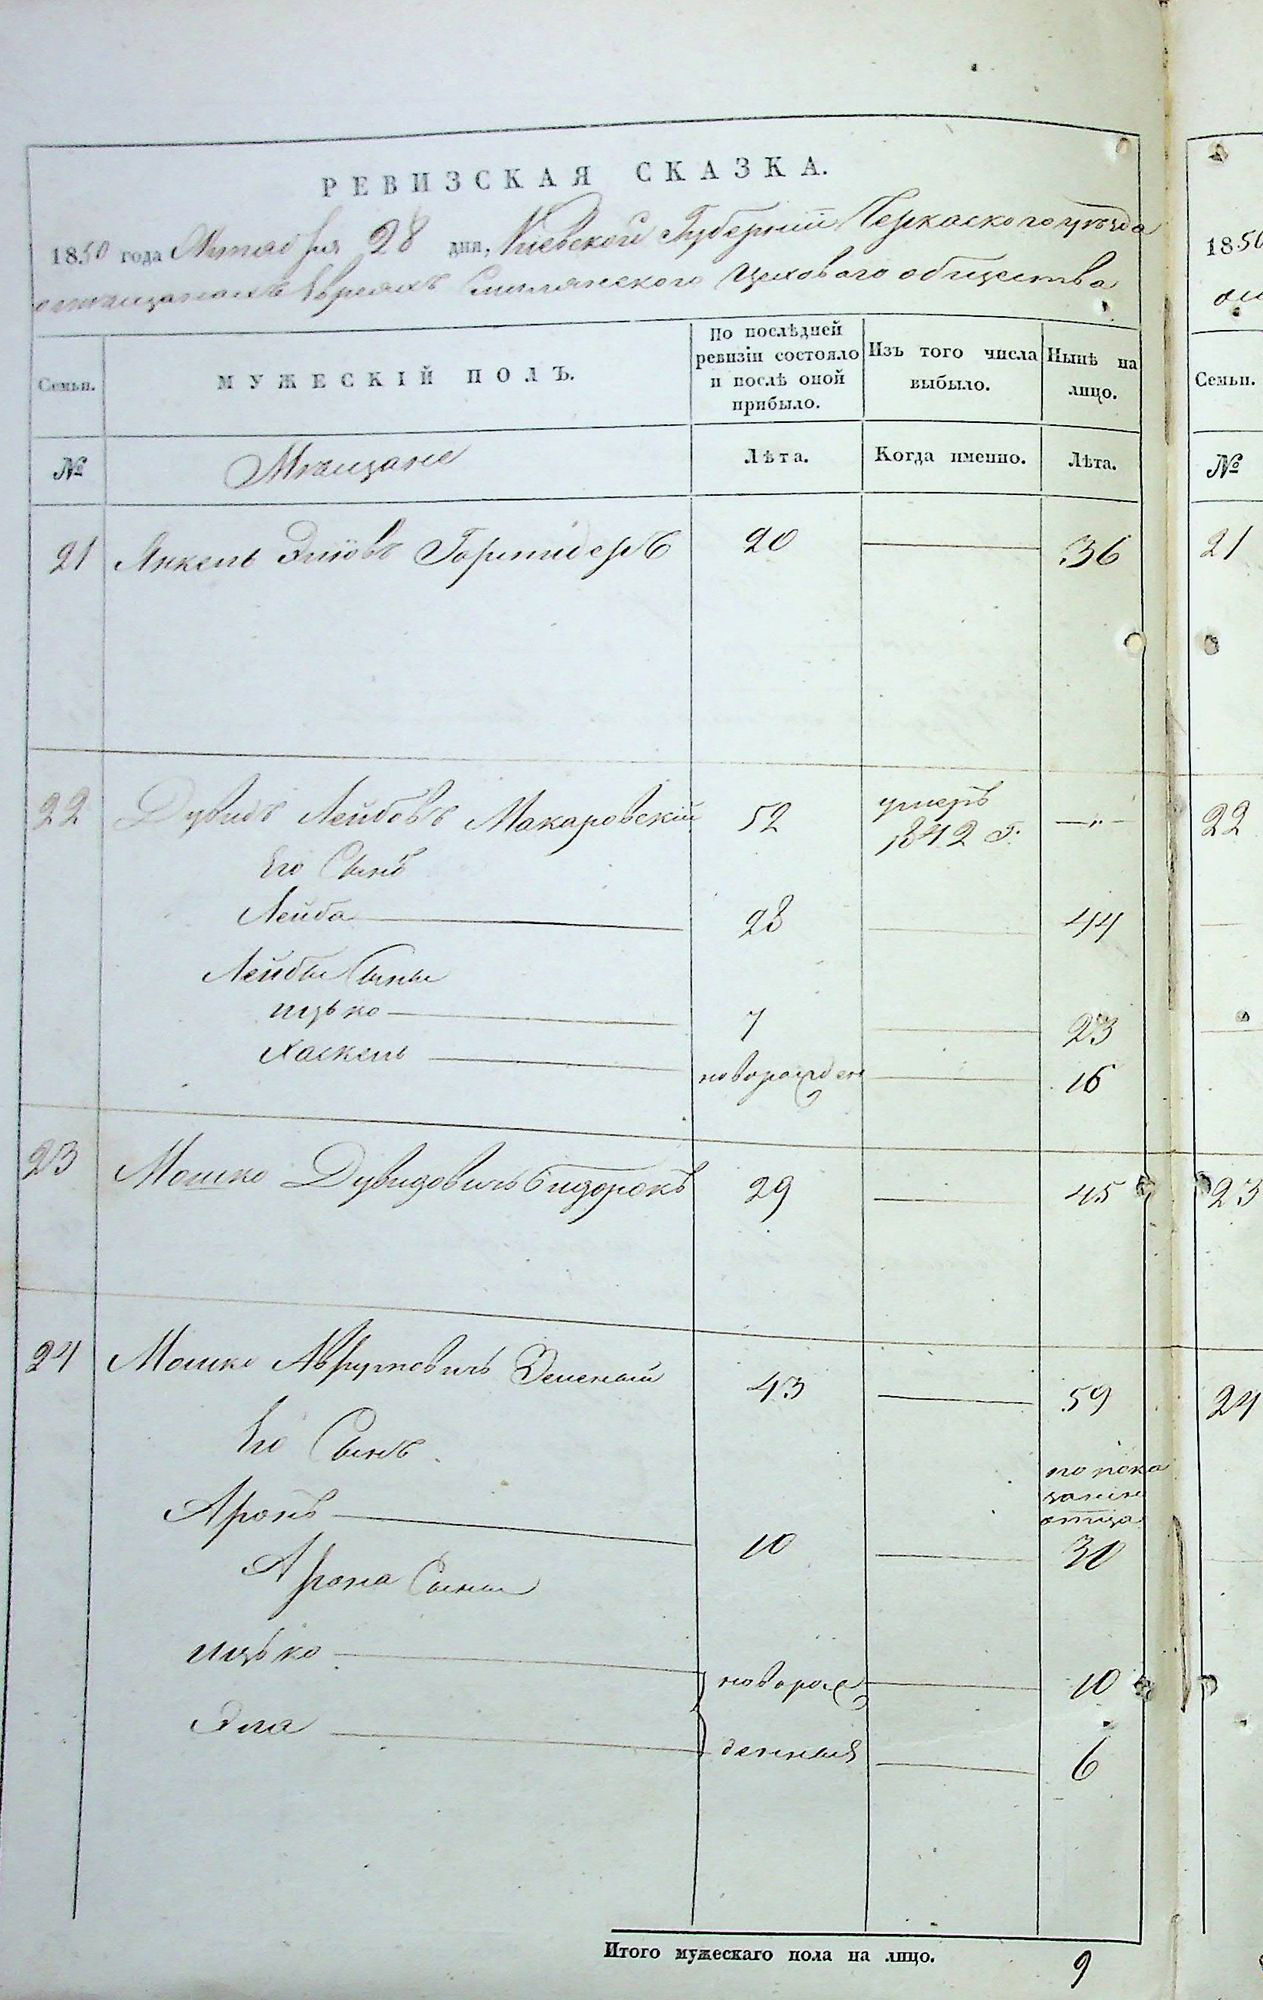 РЕВИЗСКАЯ СКАЗКА.
1850 года Октября 28 дня, Кіевской Губерніи Черкаского уѣзда
омещанахъ Евреяхъ Смилянского Цехового общества
Семьи.
МУЖЕСКІЙ ПОЛЪ.
По послѣдней ревизіи состояло и послѣ оной прибыло.
Изъ того числа выбыло.
Нынѣ на лицо.
№ Мѣщане Лѣта. Когда именно. Лѣта.
21 Янкель 20 36
22 Дувидъ Лейбовъ Макаровскій 52 умеръ 1842 г. —"—
Его Сынъ
Лейба 28 44
Лейбы Сыны
ицько 7 23
Хаскель новорожден 16
23 Мошко Дувидовичъ 29 45
24 Мошко Аврумовичъ Зеленый 43 59
Его Сынъ
по пока
занію
отца
Аронъ 10 30
Арона Сыны
ицько новорож 10
Эла денныя 6
Итого мужескаго пола на лицо. 9
1850
Семьи.
№
21
22
23
24